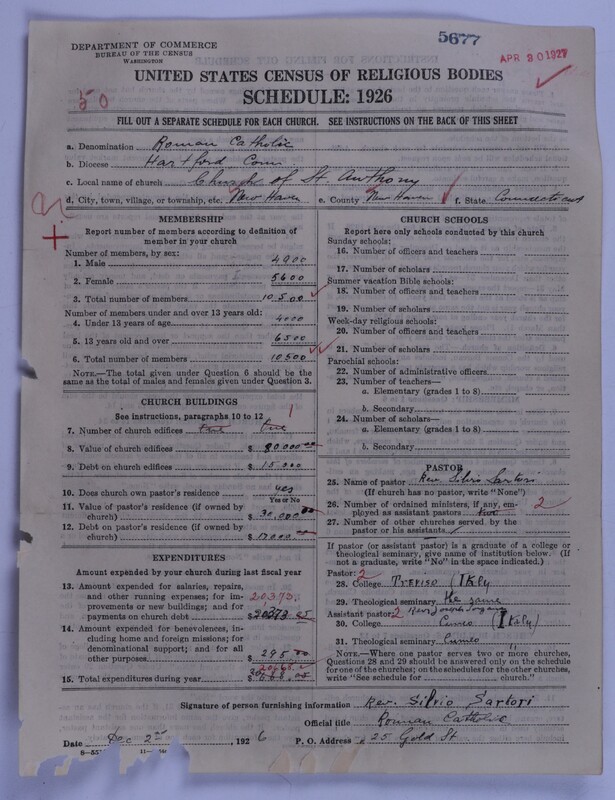 5677
APR 30 1927
DEPARTMENT OF COMMERCE
BUREAU OF THE CENSUS
WASHINGTON
UNITED STATES CENSUS OF RELIGIOUS BODIES
SCHEDULE: 1926
50
FILL OUT A SEPARATE SCHEDULE FOR EACH CHURCH. SEE INSTRUCTIONS ON THE BACK OF THIS SHEET
a. Denomination Roman Catholic
b. Diocese Hartford Conn
c. Local name of church Church of St. Anthony
d. City, town, village, or township, etc. New Haven e. County New Haven f. State Connecticut
MEMBERSHIP
Report number of members according to definition of member in your church
Number of members, by sex:
1. Male 4900
2. Female 5600
3. Total number of members 10500
Number of members under and over 13 years old:
4. Under 13 years of age 4000
5. 13 years old and over 6500
6. Total number of members 10500
NOTE.—The total given under Question 6 should be the same as the total of males and females given under Question 3.
CHURCH BUILDINGS
See instructions, paragraphs 10 to 12
7. Number of church edifices 1
8. Value of church edifices $ 80000
9. Debt on church edifices $ 15000
10. Does church own pastor's residence yes
Yes or No
11. Value of pastor's residence (if owned by church) $ 30,000
12. Debt on pastor's residence (if owned by church) $ 17000
EXPENDITURES
Amount expended by your church during last fiscal year
13. Amount expended for salaries, repairs, and other running expenses; for improvements or new buildings; and for payments on church debt $ 20373
14. Amount expended for benevolences, including home and foreign missions; for denominational support; and for all other purposes $ 295
15. Total expenditures during year $ 20668
CHURCH SCHOOLS
Report here only schools conducted by this church
Sunday schools:
16. Number of officers and teachers
17. Number of scholars
Summer vacation Bible schools:
18. Number of officers and teachers
19. Number of scholars
Week-day religious schools:
20. Number of officers and teachers
21. Number of scholars
Parochial schools:
22. Number of administrative officers
23. Number of teachers—
a. Elementary (grades 1 to 8)
b. Secondary
24. Number of scholars—
a. Elementary (grades 1 to 8)
b. Secondary
PASTOR
25. Name of pastor Rev. Silvio Sartori
(If church has no pastor, write "None")
26. Number of ordained ministers, if any, employed as assistant pastors 2
27. Number of other churches served by the pastor or his assistants
If pastor (or assistant pastor) is a graduate of a college or theological seminary, give name of institution below. (If not a graduate, write "No" in the space indicated.)
Pastor: 2
28. College Treviso (Italy
29. Theological seminary the same
Assistant pastor: 2
30. College Cuneo (Italy)
31. Theological seminary Cuneo
NOTE.—Where one pastor serves two or more churches, Questions 28 and 29 should be answered only on the schedule for one of the churches; on the schedules for the other churches, write "See schedule for church."
Signature of person furnishing information Rev. Silvio Sartori
Official title Roman Catholic
Date Dec 25, 1926 P. O. Address 25 Gold St